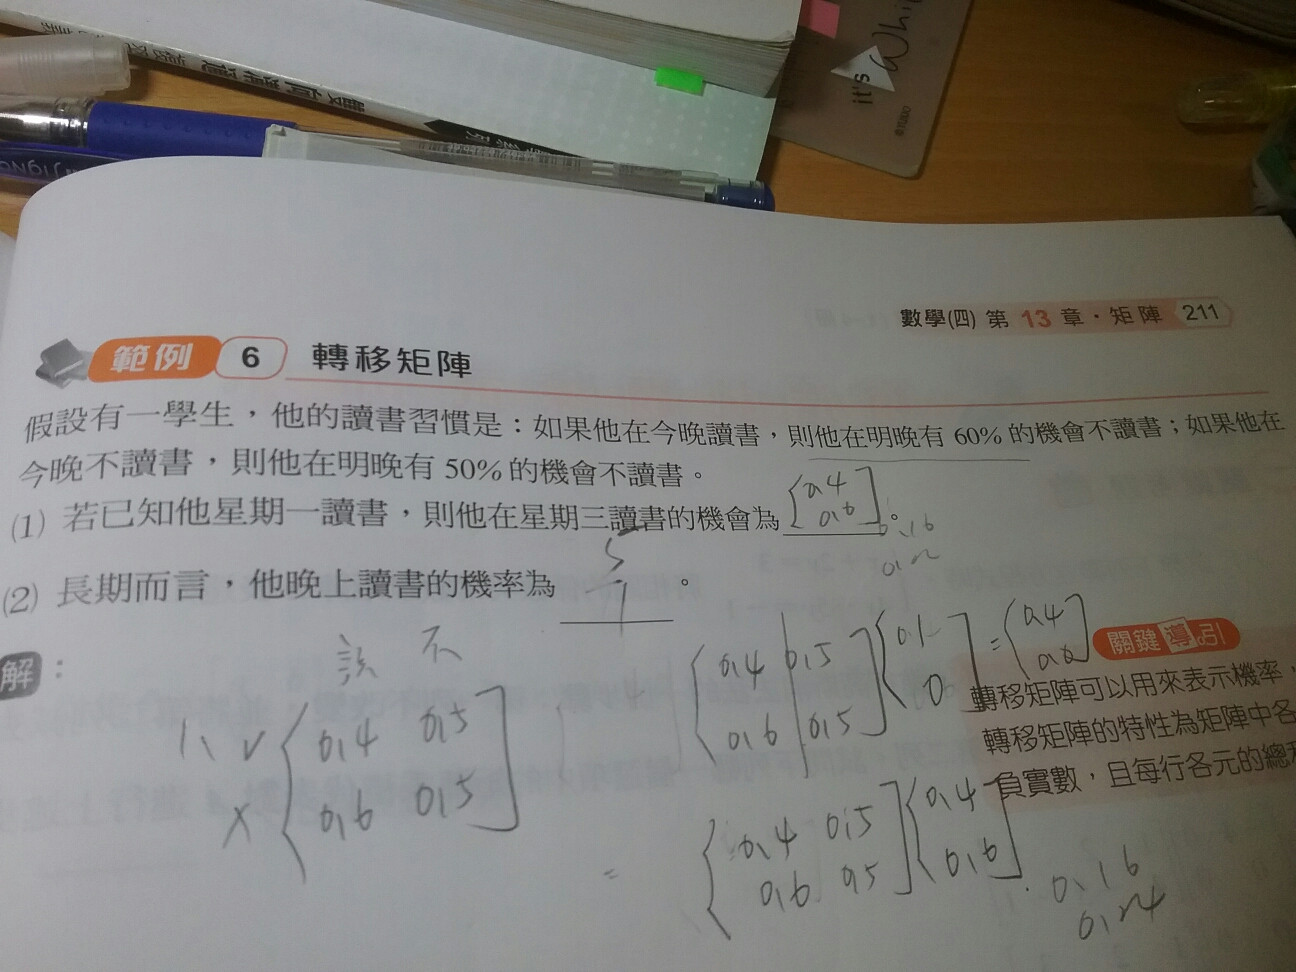 it's Whi
數學(四) 第 13 章・矩陣 211
範例 6 轉移矩陣
假設有一學生，他的讀書習慣是：如果他在今晚讀書，則他在明晚有 60% 的機會不讀書；如果他在
今晚不讀書，則他在明晚有 50% 的機會不讀書。
(1) 若已知他星期一讀書，則他在星期三讀書的機會為 [0.4 0.6]。
(2) 長期而言，他晚上讀書的機率為 。
解：
不
關鍵導引
轉移矩陣可以用來表示機率，
轉移矩陣的特性為矩陣中各
負實數，且每行各元的總和
1, ✓ [0.4 0.5
× 0.6 0.5]
[0.4 0.5
0.6 0.5] [
0] = [0.4
0.6]
= [0.4 0.5
0.6 0.5] [0.4
0.6]
0.16